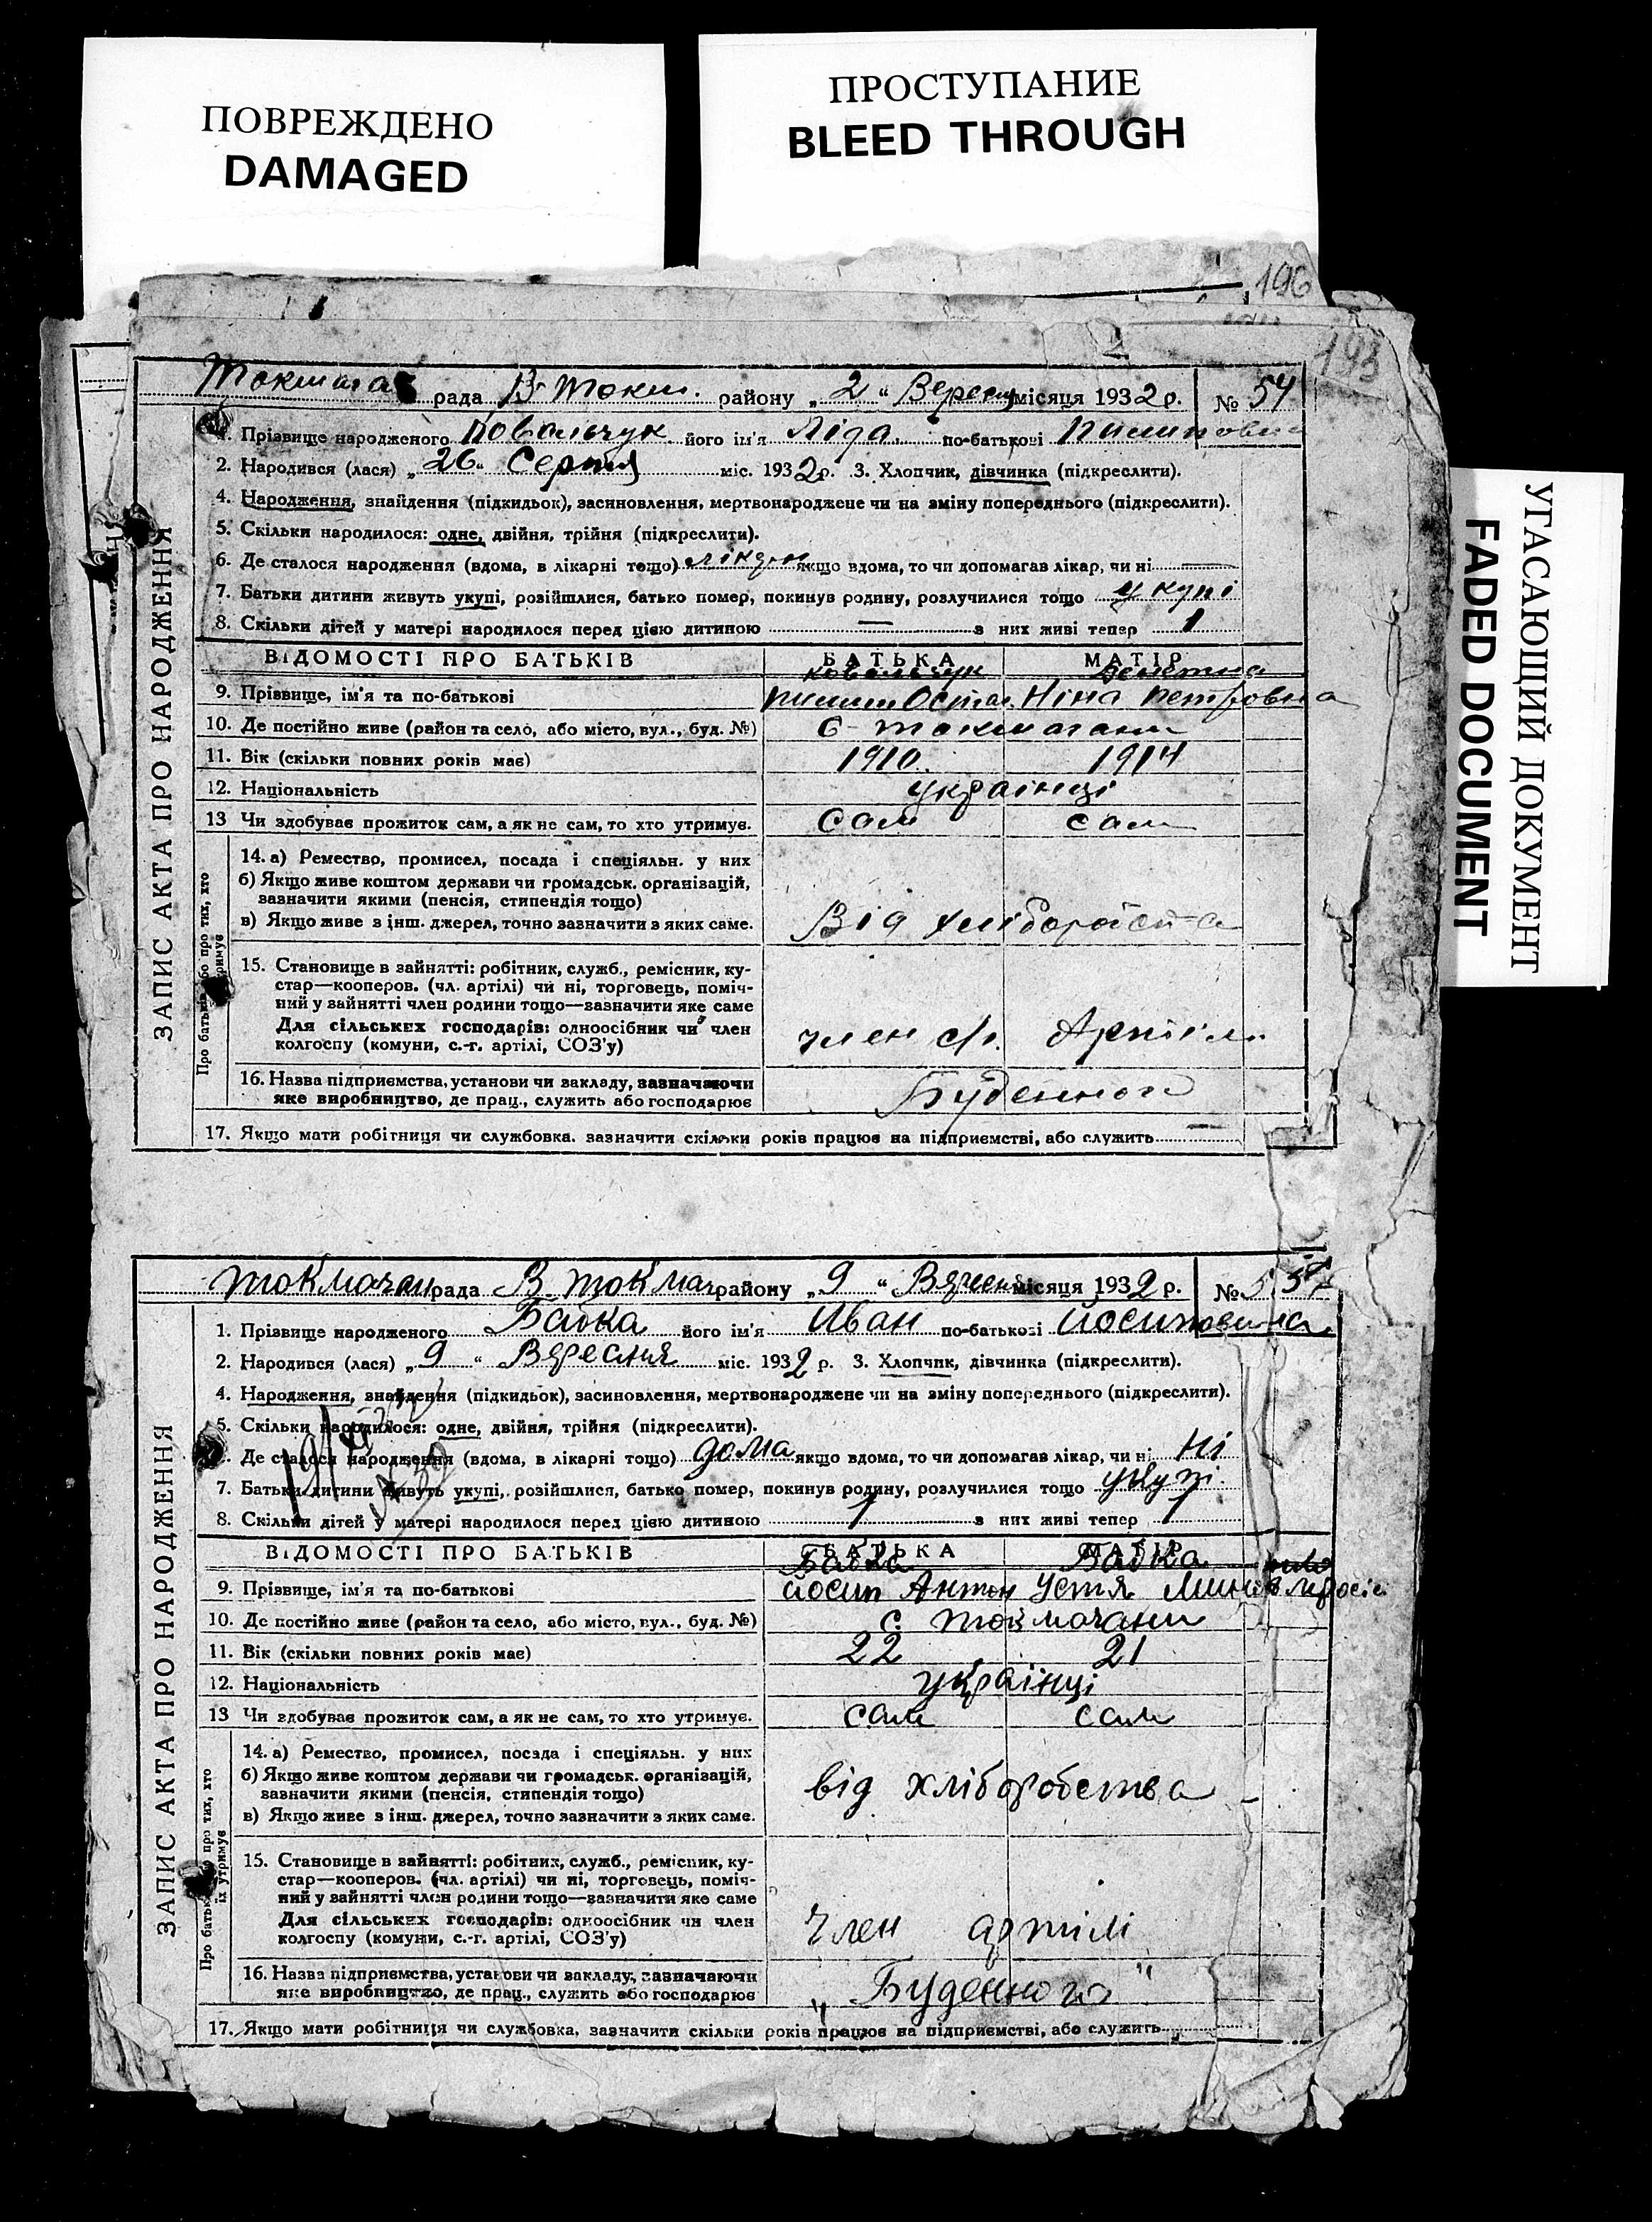 ПОВРЕЖДЕНО
DAMAGED
ПРОСТУПАНИЕ
BLEED THROUGH
УГАСАЮЩИЙ ДОКУМЕНТ
FADED DOCUMENT
196
193
ЗАПИС АКТА ПРО НАРОДЖЕННЯ
рада В-Токм. району „2“ місяця 1932 р. № 54
1. Прізвище народженого Ковальчук його ім'я Ліда по-батькові
2. Народився (лася) „26“ Серпня міс. 1932 р. 3. Хлопчик, дівчинка (підкреслити).
4. Народження, знайдення (підкидьок), засиновлення, мертвонароджене чи на зміну попереднього (підкреслити).
5. Скільки народилося: одне, двійня, трійня (підкреслити).
6. Де сталося народження (вдома, в лікарні тощо) якщо вдома, то чи допомагав лікар, чи ні —
7. Батьки дитини живуть укупі, розійшлися, батько помер, покинув родину, розлучилися тощо укупі
8. Скільки дітей у матері народилося перед цією дитиною — з них живі тепер 1
ВІДОМОСТІ ПРО БАТЬКІВ БАТЬКА МАТІР
Ковальчук
9. Прізвище, ім'я та по-батькові Остап. Ніна Петровна
10. Де постійно живе (район та село, або місто, вул., буд. №) с
11. Вік (скільки повних років має) 1910 1914
12. Національність українці
13 Чи здобуває прожиток сам, а як не сам, то хто утримує. сам сам
Про батьків або про тих, хто їх утримує
14. а) Ремество, промисел, посада і спеціяльн. у них
б) Якщо живе коштом держави чи громадськ. організацій,
зазначити якими (пенсія, стипендія тощо)
в) Якщо живе з інш. джерел, точно зазначити з яких саме. Від
15. Становище в зайнятті: робітник, служб., ремісник, ку-
стар—кооперов. (чл. артілі) чи ні, торговець, поміч-
ний у зайнятті член родини тощо—зазначити яке саме
Для сільських господарів: одноосібник чи член
колгоспу (комуни, с.-г. артілі, СОЗ'у) член с/г. Артіл
16. Назва підприємства, установи чи закладу, зазначаючи
яке виробництво, де прац., служить або господарює Буденного
17. Якщо мати робітниця чи службовка, зазначити скільки років працює на підприємстві, або служить —
ЗАПИС АКТА ПРО НАРОДЖЕННЯ
Токмачан рада В. Токмач району „9“ місяця 1932 р. №
1. Прізвище народженого Бабка його ім'я Иван по-батькові
2. Народився (лася) „9“ Вересня міс. 1932 р. 3. Хлопчик, дівчинка (підкреслити).
4. Народження, знайдення (підкидьок), засиновлення, мертвонароджене чи на зміну попереднього (підкреслити).
5. Скільки народилося: одне, двійня, трійня (підкреслити).
6. Де сталося народження (вдома, в лікарні тощо) дома якщо вдома, то чи допомагав лікар, чи ні Ні
7. Батьки дитини живуть укупі, розійшлися, батько помер, покинув родину, розлучилися тощо укупі
8. Скільки дітей у матері народилося перед цією дитиною 1 з них живі тепер 1
ВІДОМОСТІ ПРО БАТЬКІВ БАТЬКА МАТІР
Бабка Бабка
9. Прізвище, ім'я та по-батькові Йосип Антон Устя
10. Де постійно живе (район та село, або місто, вул., буд. №) с. Токмачани
11. Вік (скільки повних років має) 22 21
12. Національність українці
13 Чи здобуває прожиток сам, а як не сам, то хто утримує. сам сам
Про батьків або про тих, хто їх утримує
14. а) Ремество, промисел, посада і спеціяльн. у них
б) Якщо живе коштом держави чи громадськ. організацій,
зазначити якими (пенсія, стипендія тощо)
в) Якщо живе з інш. джерел, точно зазначити з яких саме. від хліборобства
15. Становище в зайнятті: робітник, служб., ремісник, ку-
стар—кооперов. (чл. артілі) чи ні, торговець, поміч-
ний у зайнятті член родини тощо—зазначити яке саме
Для сільських господарів: одноосібник чи член
колгоспу (комуни, с.-г. артілі, СОЗ'у) Член артілі
16. Назва підприємства, установи чи закладу, зазначаючи
яке виробництво, де прац., служить або господарює „Буденного"
17. Якщо мати робітниця чи службовка, зазначити скільки років працює на підприємстві, або служить